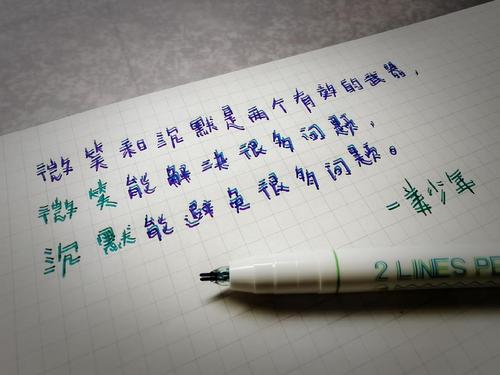 微笑和沉默是兩个有效的武器，
微笑能解決很多问題，
沉默能避免很多问題。
-美少年
2 LINES PE